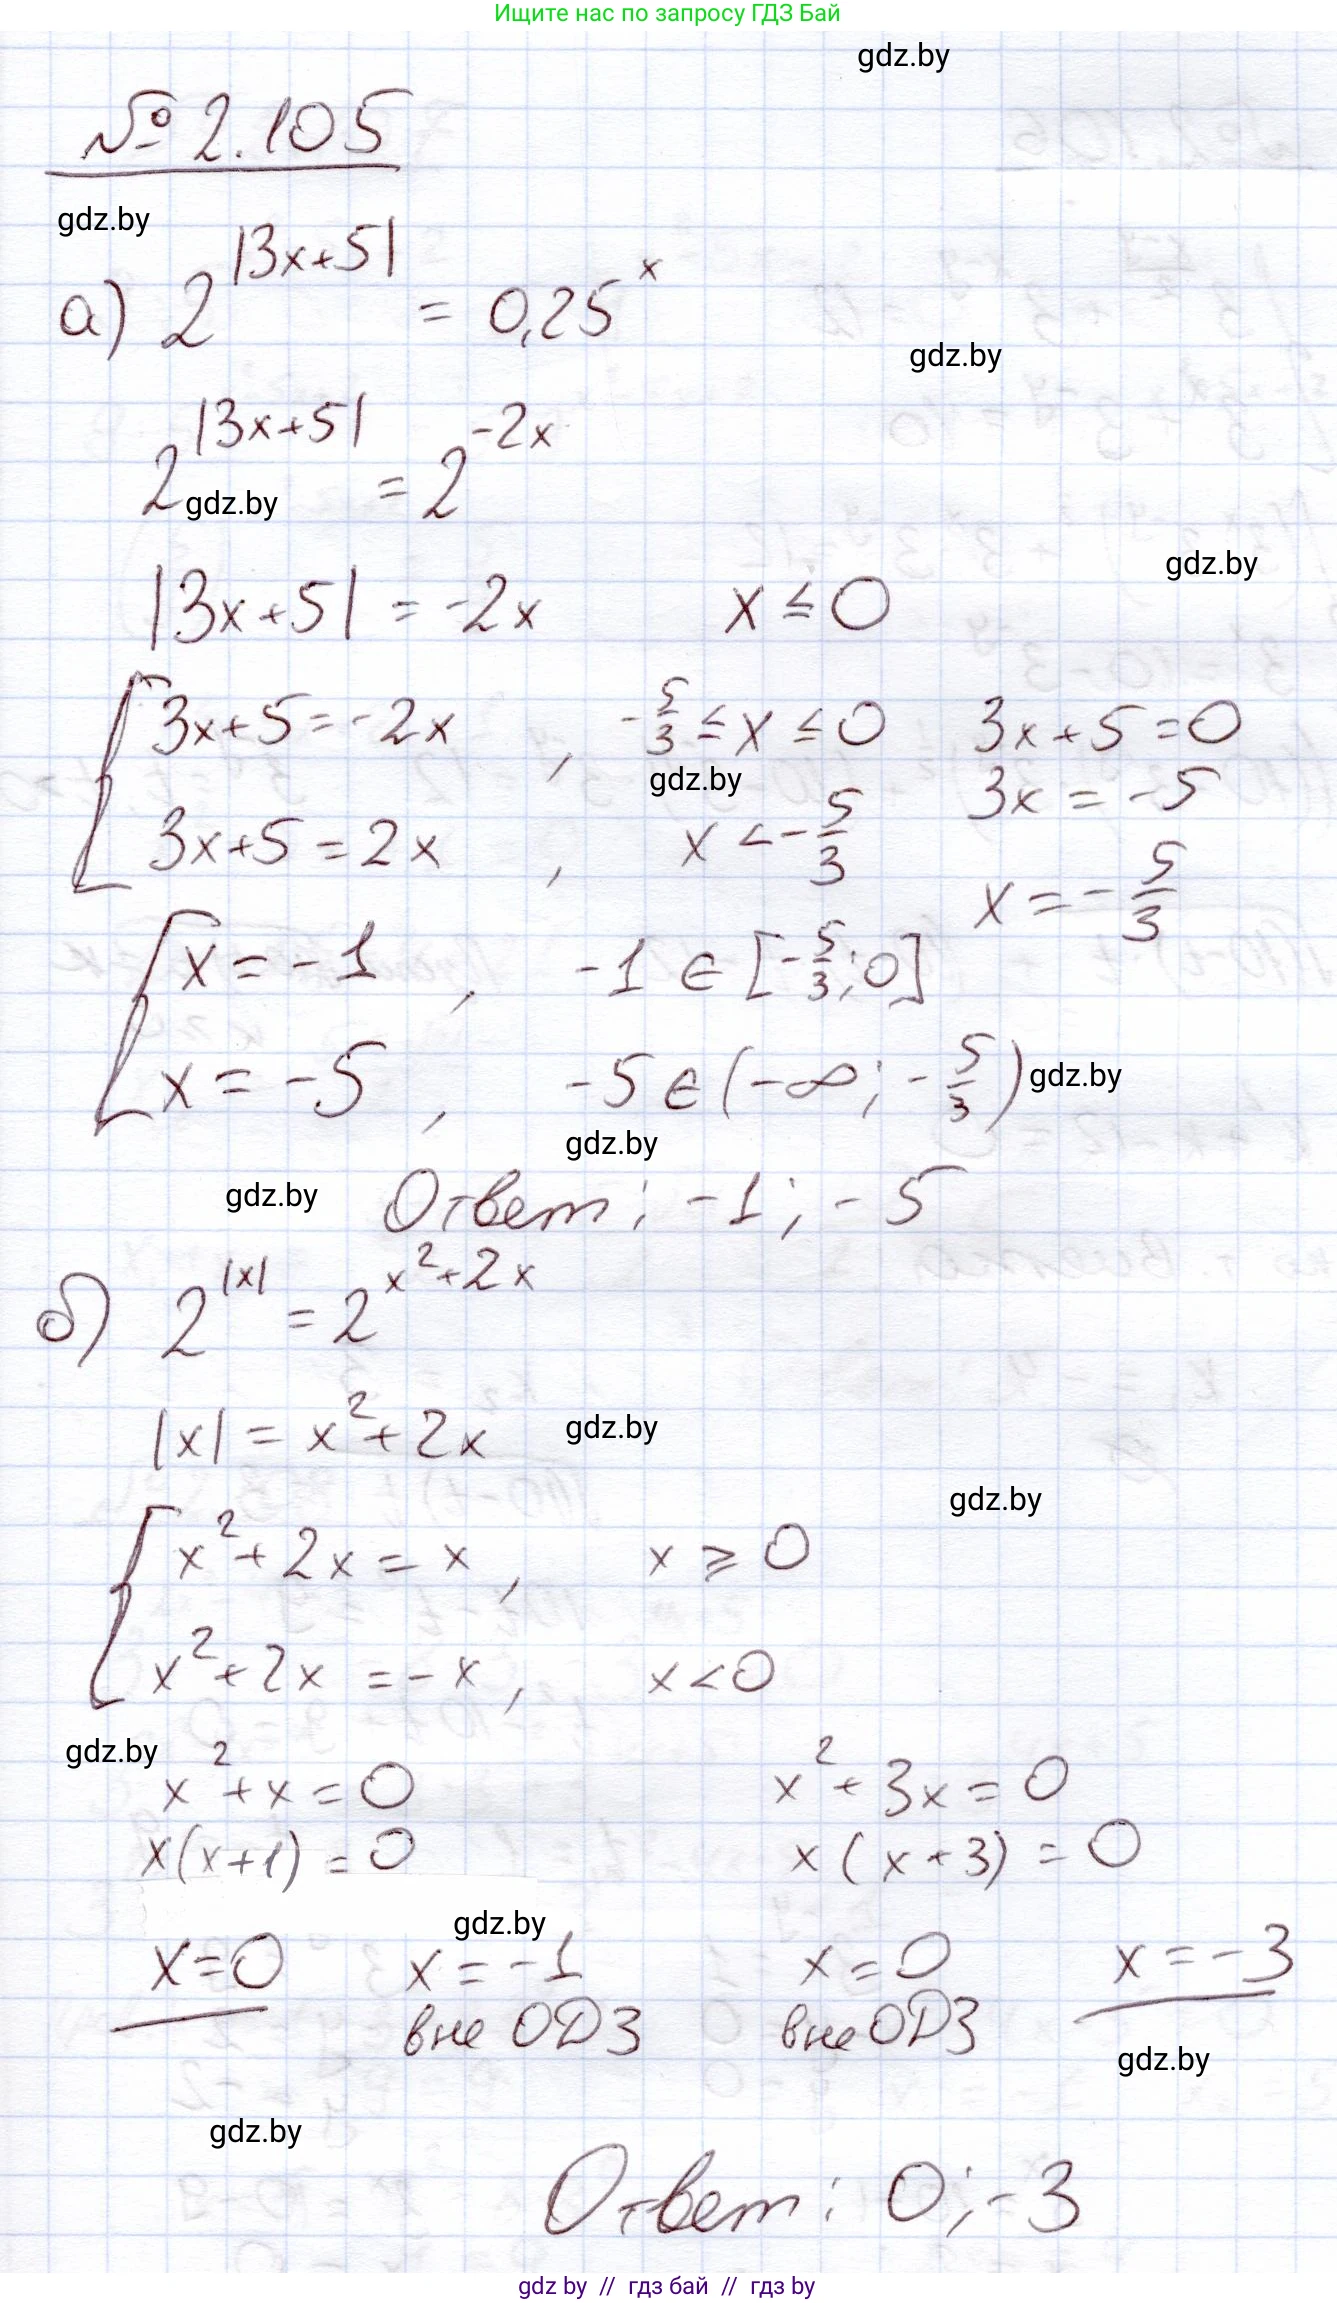 Ищите нас по запросу ГДЗ Бай
gdz.by
№ 2.105
gdz.by
а) 2^|3x+5| = 0,25^x
gdz.by
2^|3x+5| = 2^-2x
gdz.by
gdz.by
|3x+5| = -2x x ≤ 0
[ 3x+5 = -2x , -5/3 ≤ x ≤ 0 3x+5 = 0
gdz.by
3x = -5
3x+5 = 2x , x < -5/3
x = -5/3
[ x = -1 , -1 ∈ [-5/3; 0]
x = -5 , -5 ∈ (-∞; -5/3)
gdz.by
gdz.by
gdz.by
Ответ: -1; -5
б) 2^|x| = 2^x²+2x
|x| = x² + 2x
gdz.by
gdz.by
[ x² + 2x = x , x ≥ 0
x² + 2x = -x , x < 0
gdz.by
x² + x = 0 x² + 3x = 0
x(x+1) = 0 x(x+3) = 0
gdz.by
x = 0 x = -1 x = 0 x = -3
вне ОДЗ вне ОДЗ
gdz.by
gdz.by
Ответ: 0; -3
gdz by // гдз бай // gdz by